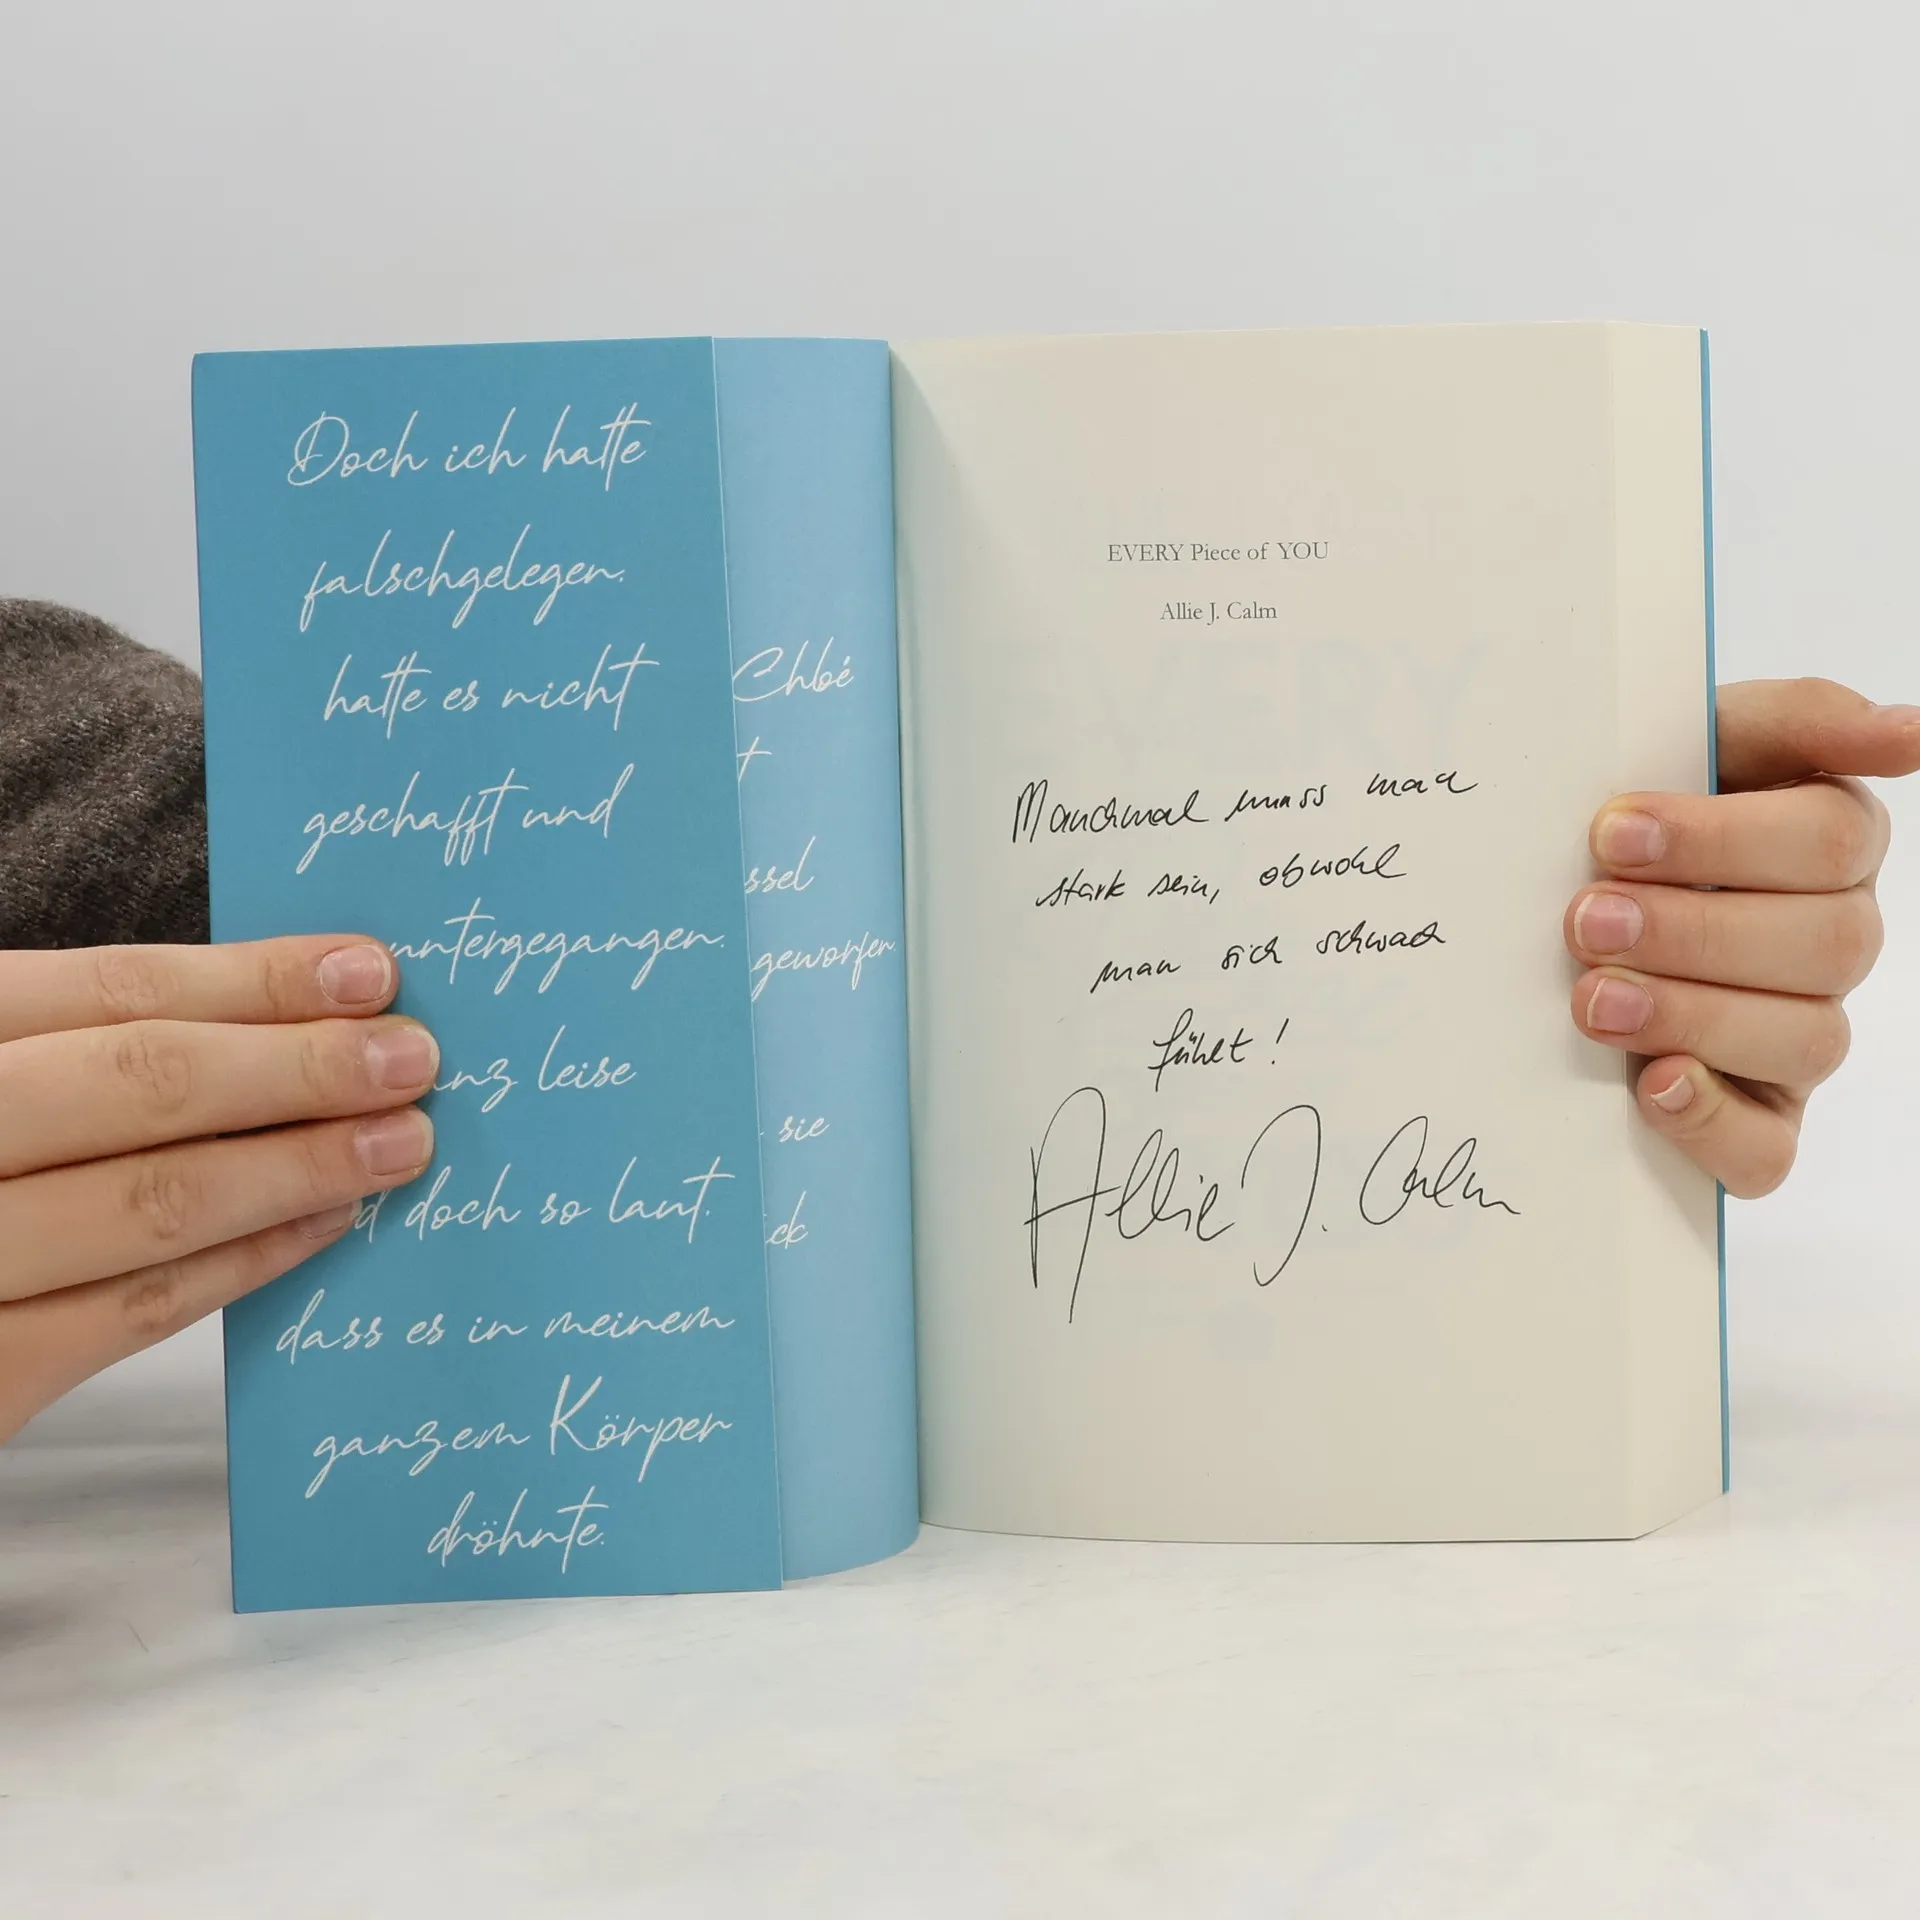 Doch ich hatte
falschgelegen.
hatte es nicht
geschafft und
leise
doch so laut.
dass es in meinem
ganzem Körper
dröhnte.
Chloé
geworfen.
sie
EVERY Piece of YOU
Allie J. Calm
Manchmal muss man
stark sein, obwohl
man sich schwach
fühlt!
Allie J. Calm